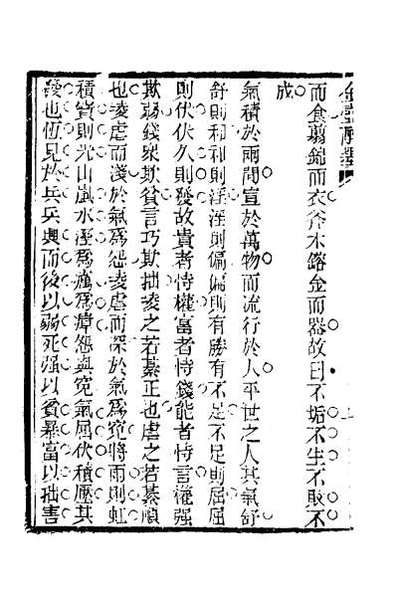 而食翦錦而衣斧木鎔金而器故曰不垢不生不敗不
成
氣積於兩間宣於萬物而流行於人平世之人其氣舒
舒則和和則淫淫則偏偏則有勝有不足不足則屈屈
則伏伏久則發故貴者恃權富者恃錢能者恃言權强
欺弱錢衆欺貧言巧欺拙凌之若綦正也虐之若綦順
也凌虐而淺於氣爲怨凌虐而深於氣爲寃將雨則虹
積寶則光山嵐水溼爲癘爲瘴怨與寃氣屈伏積壓其
發也恆見於兵兵興而後以弱死强以貧暴富以拙害